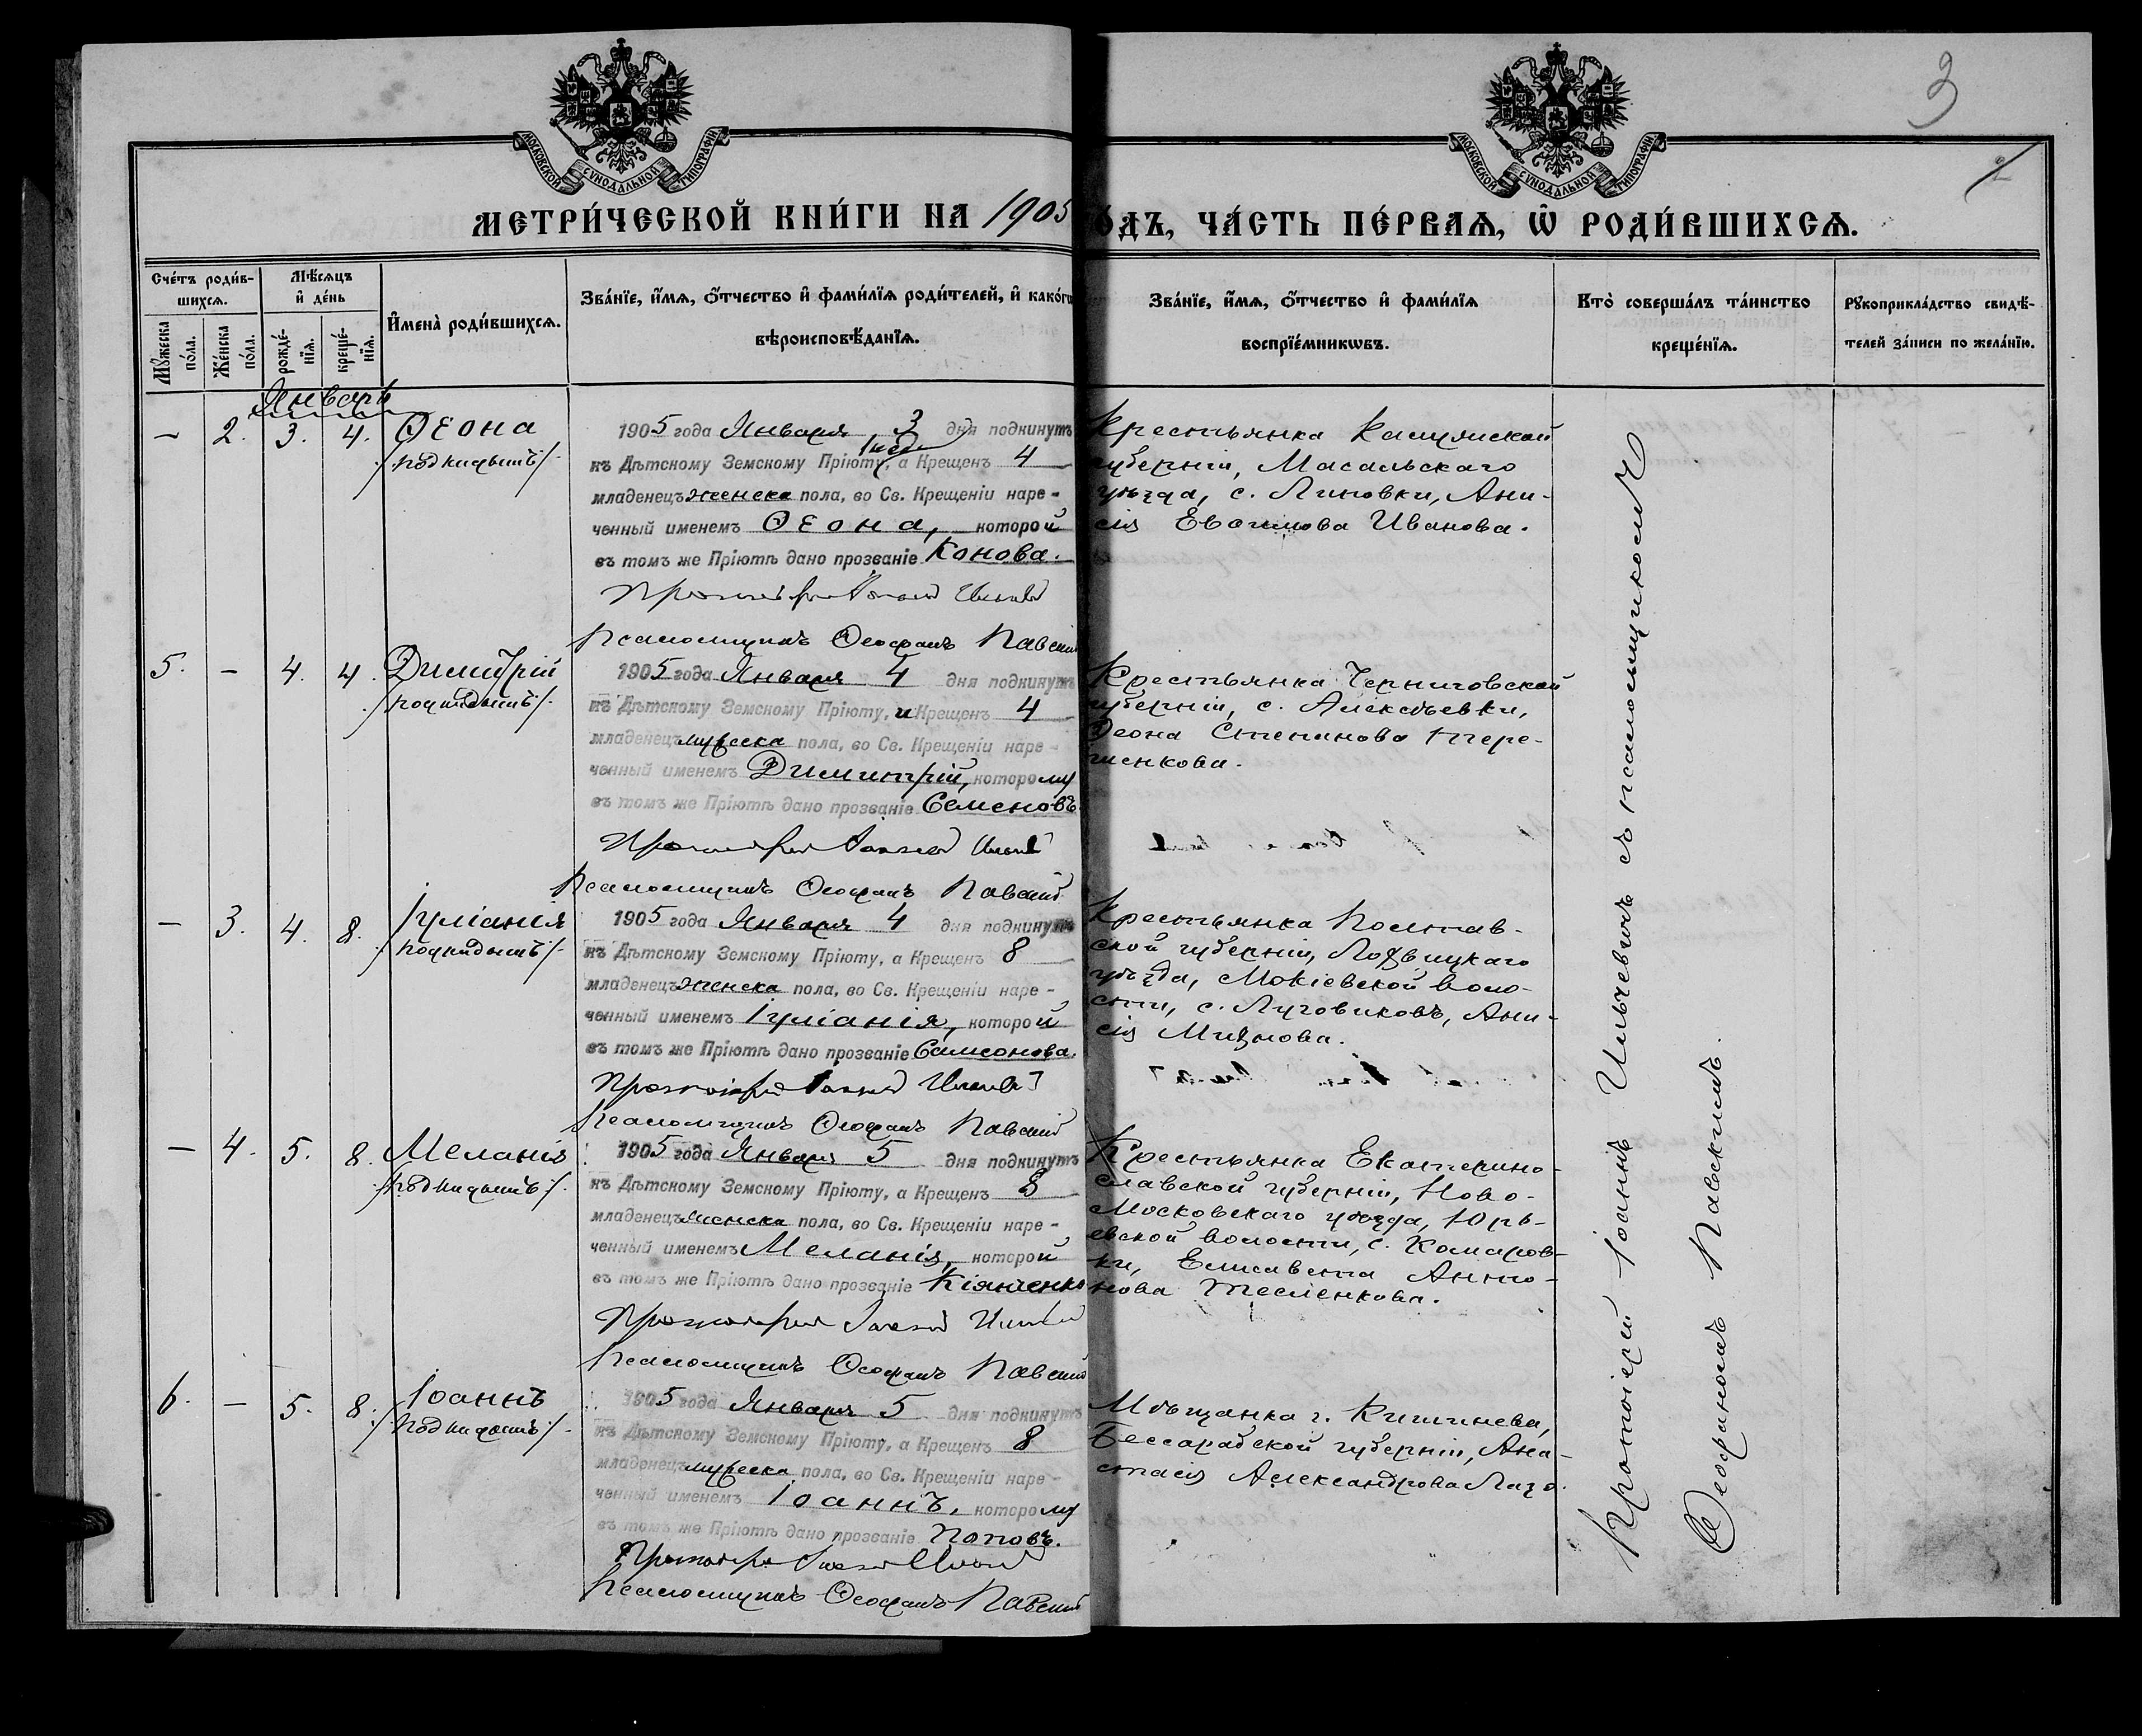 МОСКОВСКОЙ СѴНОДАЛЬНОЙ ТИПОГРАФІИ.
МОСКОВСКОЙ СѴНОДАЛЬНОЙ ТИПОГРАФІИ.
3
МЕТРИ́ЧЕСКОЙ КНИ́ГИ НА 1905
ОДЪ, ЧА́СТЬ ПЕ́РВАѦ, Ѡ РОДИ́ВШИХСѦ.
Сче́тъ роди́в-
шихсѧ.
Мꙋ́жеска по́ла.
Же́нска по́ла.
Мѣ́сѧцъ
и҆ де́нь
рожде́-нїѧ.
креще́-нїѧ.
И҆мена̀ роди́вшихсѧ.
Зва́нїе, и҆́мѧ, о҆́тчество и҆ фами́лїѧ роди́телей, и҆ како́гѡ
вѣроисповѣ́данїѧ.
Зва́нїе, и҆́мѧ, о҆́тчество и҆ фами́лїѧ
воспрїе́мникѡвъ.
Кто̀ соверша́лъ та́инство
креще́нїѧ.
Рꙋкоприкла́дство свидѣ́-
телей за́писи по жела́нїю.
Январь
– 2. 3. 4. Ѳеона
/подкидышъ/
1905 года Января 3 дня подкинутъ
къ Дѣтскому Земскому Пріюту, а Крещенъ 4
младенецъ женска пола, во Св. Крещеніи наре-
ченный именемъ Ѳеона, которой
въ томъ же Пріютѣ дано прозваніе Конова.
Псаломщикъ Ѳеофанъ Павскій
Крестьянка Калужской
губерніи, Масальскаго
уѣзда, с. Липовки, Ани-
сія Евѳимова Иванова.
5. – 4. 4. Димитрій
/подкидышъ/.
1905 года Января 4 дня подкинутъ
къ Дѣтскому Земскому Пріюту, и Крещенъ 4
младенецъ мужеска пола, во Св. Крещеніи наре-
ченный именемъ Димитрій, которому
въ томъ же Пріютѣ дано прозваніе Семеновъ.
Псаломщикъ Ѳеофанъ Павскій
Крестьянка Черниговской
губерніи, с. Алексѣевки,
Ѳеона Степанова Тере-
щенкова.
– 3. 4. 8. Іуліанія
/подкидышъ/.
1905 года Января 4 дня подкинутъ
къ Дѣтскому Земскому Пріюту, а Крещенъ 8
младенецъ женска пола, во Св. Крещеніи наре-
ченный именемъ Іуліанія, которой
въ томъ же Пріютѣ дано прозваніе Самсонова.
Псаломщикъ Ѳеофанъ Павскій
Крестьянка Полтав-
ской губерніи, Лохвицкаго
уѣзда, Мокіевской воло-
сти, с. Луговиковъ, Ани-
сія
– 4. 5. 8. Меланія
/подкидышъ/.
1905 года Января 5 дня подкинутъ
къ Дѣтскому Земскому Пріюту, а Крещенъ 8
младенецъ женска пола, во Св. Крещеніи наре-
ченный именемъ Меланія, которой
въ томъ же Пріютѣ дано прозваніе Кіянченко
Псаломщикъ Ѳеофанъ Павскій
Крестьянка Екатерино-
славской губерніи, Ново-
Московскаго уѣзда, Юрь-
евской волости, с. Комаров-
ки, Елисавета Анто-
нова Тесленкова.
6. – 5. 8. Іоаннъ
/подкидышъ/.
1905 года Января 5 дня подкинутъ
къ Дѣтскому Земскому Пріюту, а Крещенъ 8
младенецъ мужеска пола, во Св. Крещеніи наре-
ченный именемъ Іоаннъ, которому
въ томъ же Пріютѣ дано прозваніе Поповъ.
Псаломщикъ Ѳеофанъ Павскій
Мѣщанка г. Кишинева,
Бессарабской губерніи, Ана-
стасія Александрова Лазо.
Протоіерей Іоаннъ Ильчевичъ съ псаломщикомъ
Ѳеофаномъ Павскимъ.